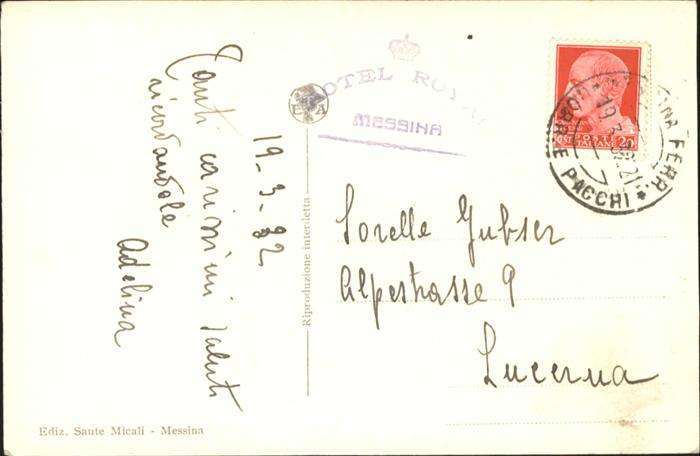 Tanti carissimi saluti
ricordandole
Adelina
19-3-32
HOTEL ROYAL
MESSINA
E A
POSTE ITALIANE 20
FERR
PACCHI
Riproduzione interdetta
Sorelle Gubser
Alpestrasse 9
Lucerna
Ediz. Saute Micali - Messina